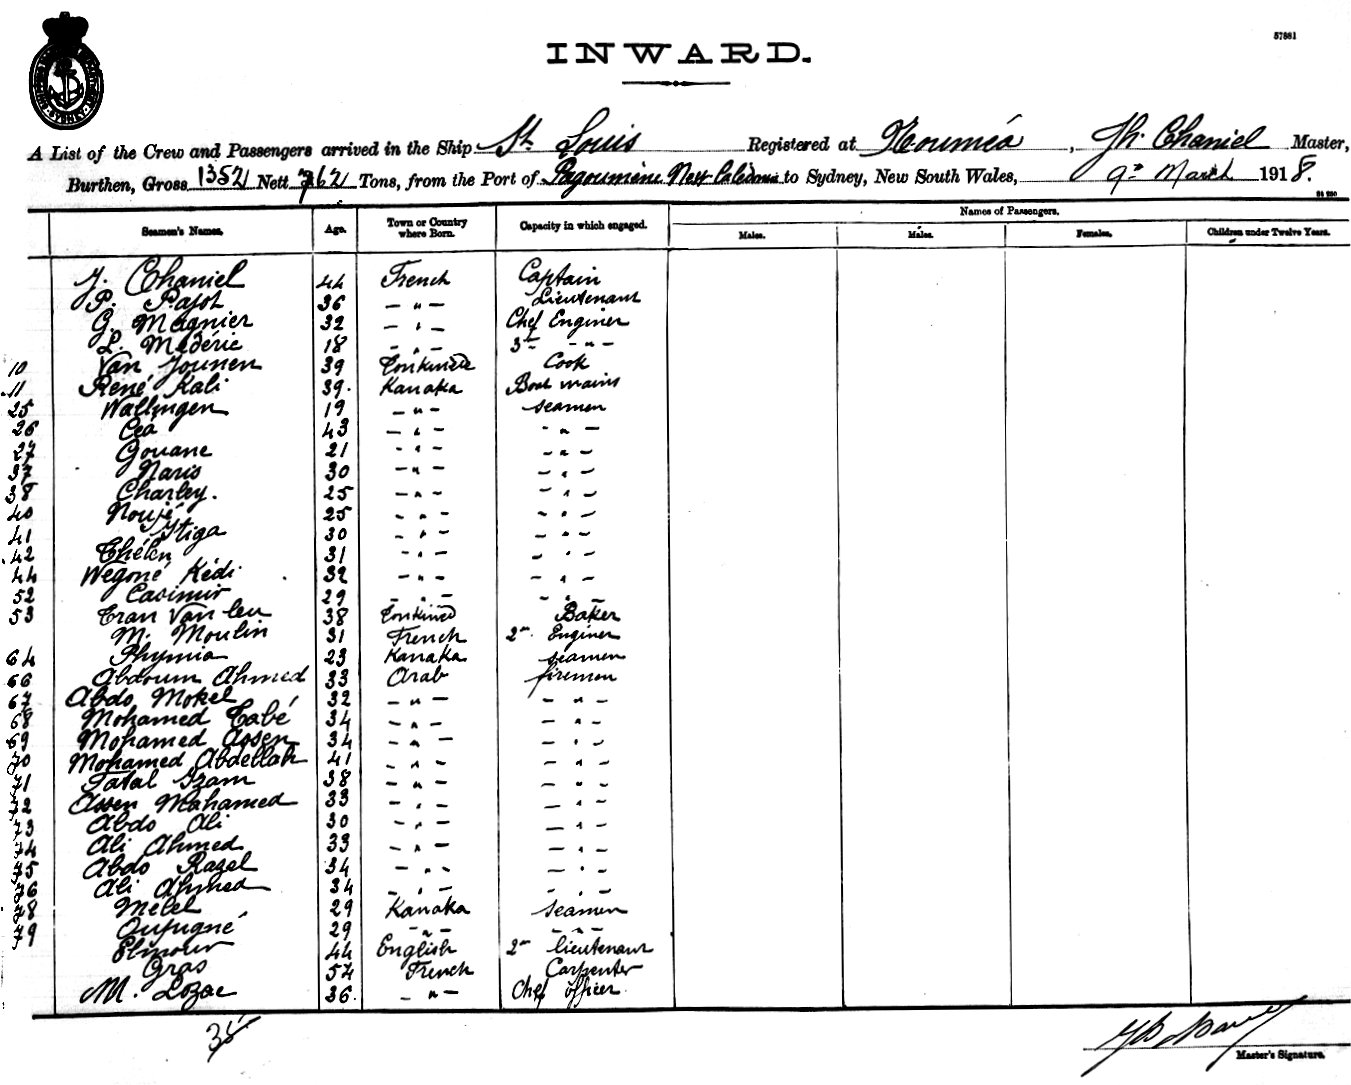 57881
INWARD.
A List of the Crew and Passengers arrived in the Ship St. Louis Registered at Nouméa, Th. Chaniel Master,
Burthen, Gross 1352 Nett 762 Tons, from the Port of Pagoumène New Calédonie to Sydney, New South Wales, 9th March 1918.
Seamen's Names. Age. Town or Country where Born. Capacity in which engaged. Names of Passengers.
Males. Males. Females. Children under Twelve Years.
J. Chaniel 44 French Captain
P. Pajot 36 – " – Lieutenant
G. Magnier 32 – " – Chef Enginer
L. Médéric 18 – " – 3rd – " –
10 Van Jounen 39 Tonkinese Cook
11 René Kali 39. Kanaka Boat mains
25 Wallingen 19 – " – seamen
26 Céa 43 – " – – " –
27 Gouane 21 – " – – " –
37 Naris 30 – " – – " –
38 Charley. 25 – " – – " –
40 Noujé 25 – " – – " –
41 Itiga 30 – " – – " –
42 Thélen 31 – " – – " –
44 Wégoné Kédi 32 – " – – " –
52 Casimir 29 – " – – " –
53 Tran Van leu 38 Tonkined Baker
M. Moulin 31 French 2nd Enginer
64 Phymia 23 Kanaka seamen
66 Abdoum Ahmed 33 Arab firemen
67 Abdo Mokel 32 – " – – " –
68 Mohamed Tabé 34 – " – – " –
69 Mohamed Assen 34 – " – – " –
70 Mohamed Abdellah 41 – " – – " –
71 Fatal Izam 38 – " – – " –
72 Assen Mahamed 33 – " – – " –
73 Abdo Ali 30 – " – – " –
74 Ali Ahmed 33 – " – – " –
75 Abdo Razel 34 – " – – " –
76 Ali Ahmed 34 – " – – " –
78 Mélel 29 Kanaka seamen
79 Oufugné 29 – " – – " –
Elmour 44 English 2nd lieutenant
Gras 54 French Carpenter
M. Lozac 36. – " – Chef officer
35
Master's Signature.